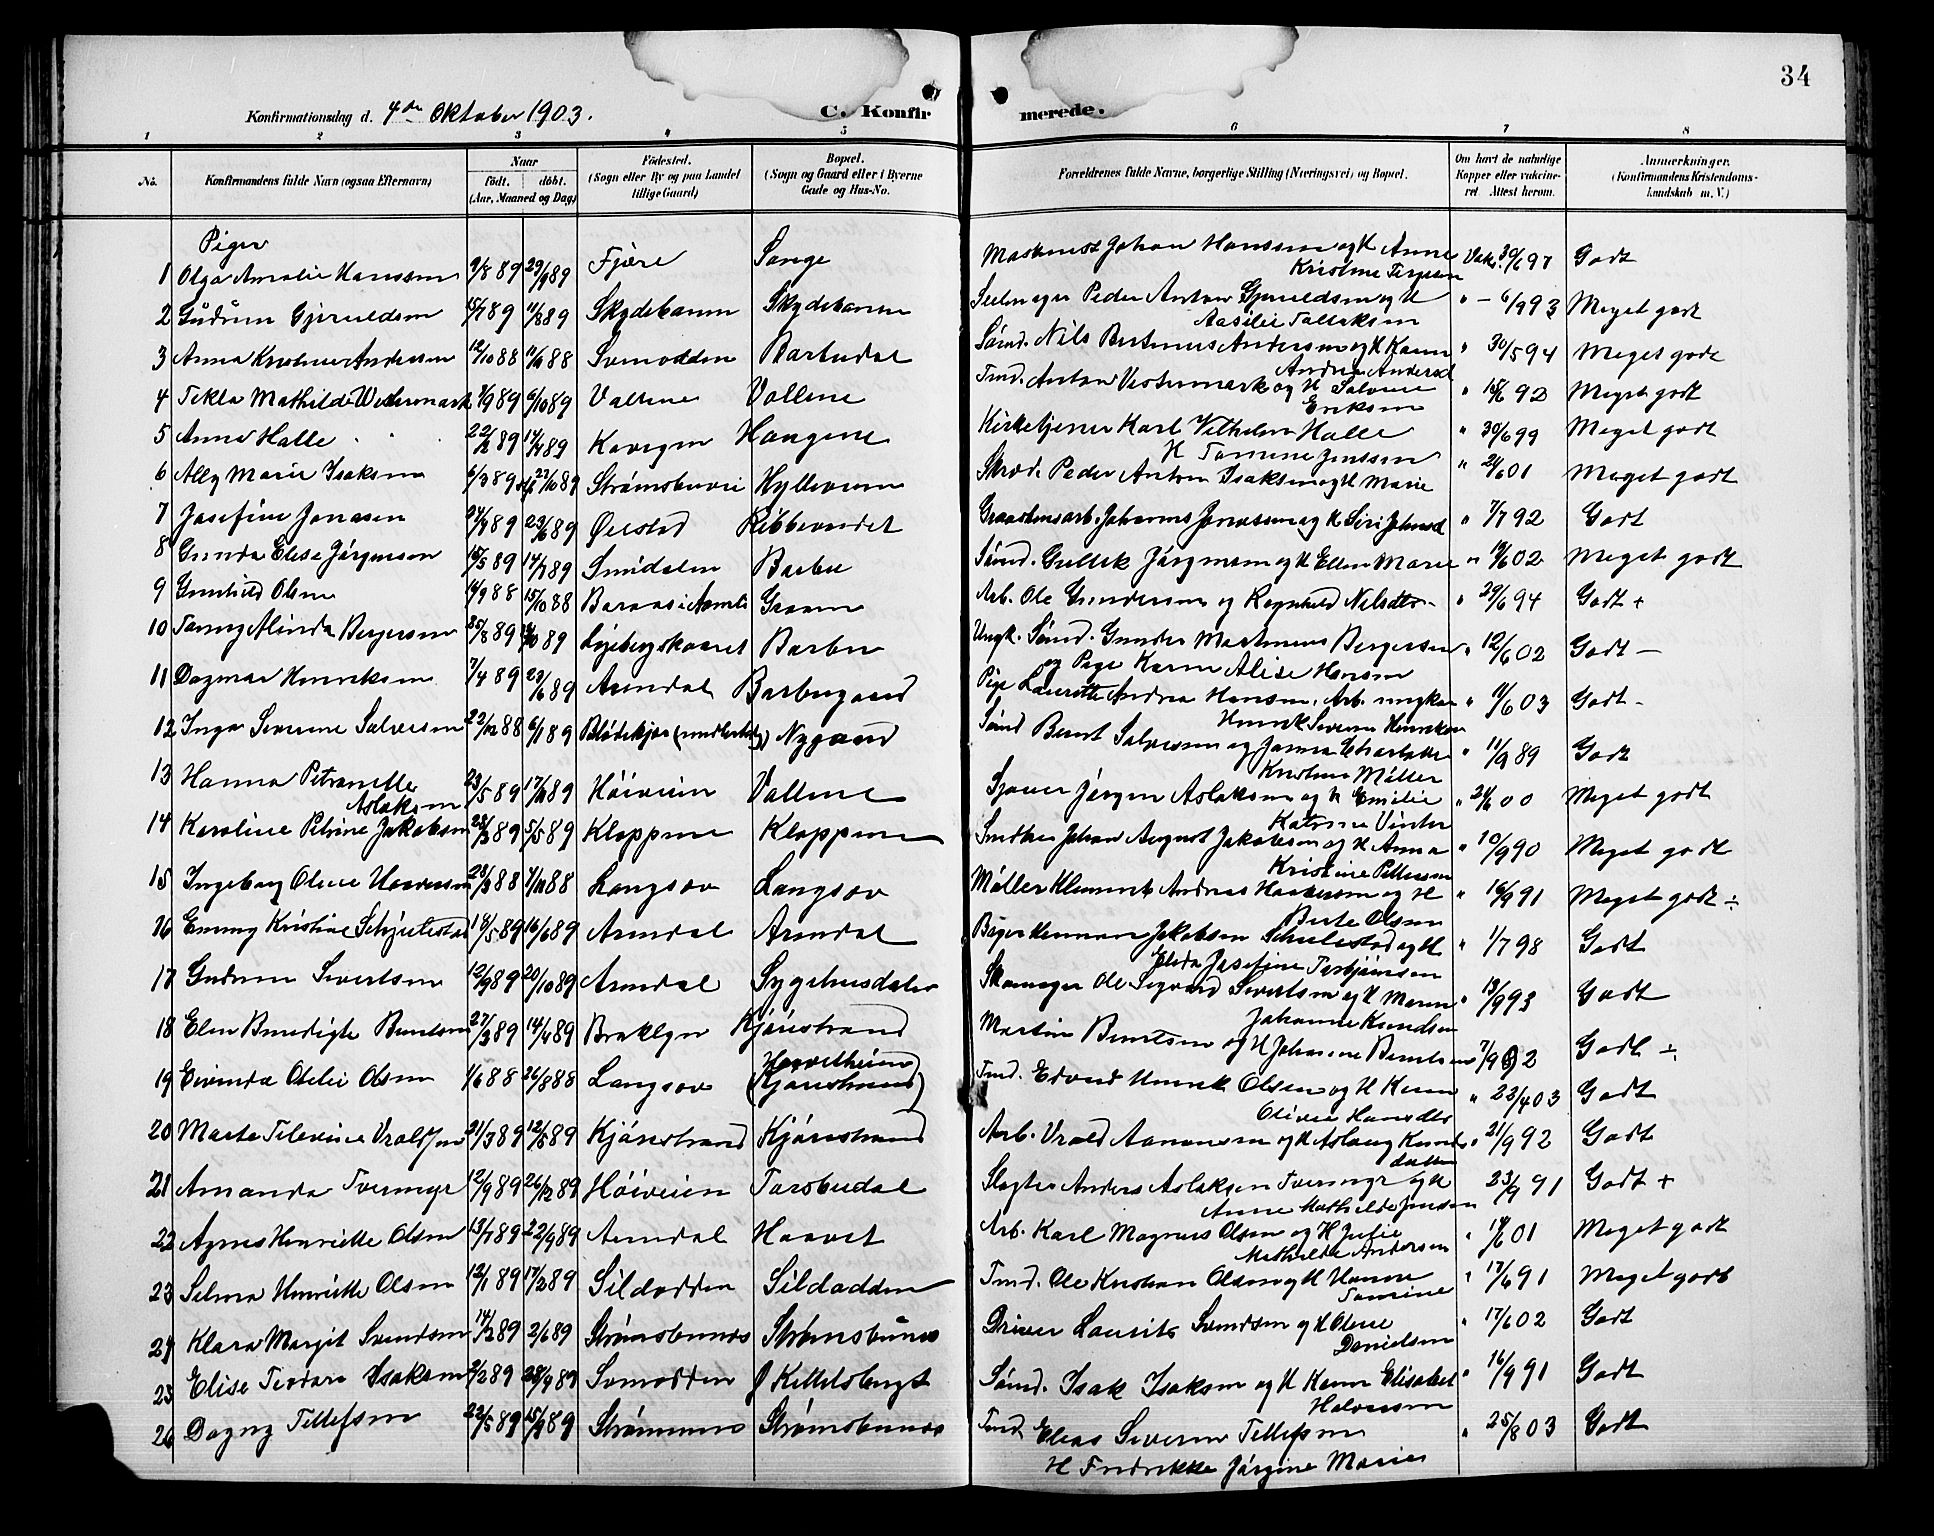 34
Konfirmationsdag d. 4de Oktober 1903. C. Konfirmerede.
1 2 3 4 5 6 7 8
No. Konfirmandens fulde Navn (ogsaa Efternavn) Naar født. døbt. (Aar, Maaned og Dag) Fødested. (Sogn eller By og paa Landet tillige Gaard) Bopæl. (Sogn og Gaard eller i Byerne Gade og Hus-No. Forældrenes fulde Navne, borgerlige Stilling (Næringsvei) og Bopæl. Om havt de naturlige Kopper eller vakcineret. Attest herom. Anmerkninger. (Konfirmandens Kristendomskundskab m. V.)
Piger
1 Olga Amalie Hanssen 9/8 89 29/9 89 Fjære Songe Maskinist Johan Hanssen og H Anne Kristine Terjesen Vaks. 30/6 97 Godt
2 Gudrun Gjeruldsen 15/7 89 11/8 89 Skydebanen Skydebanen Peder Anton Gjeruldsen og H Aasilie Tallaksen " — 6/9 93 Meget godt
3 Anna Kristine Andersen 12/10 88 88 Svinodden Barbudal Sømd. Nils Andersen og H Karen Andrea Andersd " 30/5 94 Meget godt
4 Tekla Mathilde Westermark 7/9 89 6/10 89 Vallene Vollene Tmd. Anton Vestermark og H Salvine Eriksen " 92 Meget godt
5 Anne Halle 22/2 89 14/4 89 Haugene Kirketjener Karl Vilhelm Halle H Tomine Jenssen " 30/6 99 Meget godt
6 Ally Marie Isaksen 6/3 89 27/10 89 Strømsbuvei Hylleveien Skræd. Peder Anton Isaksen og H Marie " 24/6 01 Meget godt
7 Josefine Jonasen 24/4 89 23/6 89 Øiestad Ribbevandet Graastensarb. Johannes Jonassen og H Siri Johnsd " 7/7 92 Godt
8 Gunda Elise Jørgensen 16/5 89 14/7 89 Smidalen Barbu Sømd. Gullek Jørgensen og H Ellen Marie " 02 Meget godt
9 Gunhild Olsen 14/9 88 15/10 88 Baraas i Aamli Graaen Arb. Ole Gundersen og Ragnhild Nilsdtr. " 29/6 94 Godt +
10 Tanny Alinda Bergersen 25/8 89 89 Lyebergskaaret Barbu Ungk. Sømd. Gunder Martinius Bergersen og Pige Karen Alise Hansen " 12/6 02 Godt —
11 Dagmar Henriksen 7/4 89 23/6 89 Arendal Barbugaard Pige Lauritte Andrea Hansen, Arb. ungkar Henrik Severin Henriksen " 03 Godt -
12 Inga Severine Salvesen 22/12 88 6/1 89 Blødekjær Nygaard Sømd Bernt Salvesen og Janna Charlotte Kristine Møller " 11/9 89 Godt
13 Hanna Petranelle Aslaksen 23/5 89 89 Høiveien Vollene Jørgen Aslaksen og H Emilie Katrine Vinter " 24/6 00 Meget godt
14 Karoline Petrine Jakobsen 28/3 89 5/5 89 Kloppene Kloppene Snedker Johan August Jakobsen og H Anna Kristine Pettersen " 10/9 90 Meget godt
15 Ingeborg Olene Haaversen 28/3 88 88 Langsæv Langsæv Møller Klemmet Andreas Haaversen og H Berte Olsen " 16/9 91 Meget godt ÷
16 Emmy Kristine Schjulestad 18/5 89 16/6 89 Arendal Arendal Herman Jakobsen Schulestad og H Elida Josefine Torbjørnsen " 1/7 98 Godt
17 Gudrun Sivertsen 12/9 89 20/10 89 Arendal Sygehusdalen Skomager Ole Sigvard Sivertsen og H Maren Johanne Knudsen " 13/9 93 Godt
18 Elen Benedigte Berntsen 27/3 89 14/4 89 Broklyn Kjønstrand Martin Berntsen og H Johanne Berntsen 7/9 92 Godt ÷
19 Eivinda Otelie Olsen 1/6 88 26/8 88 Langsæv Haavetheien (Kjønstrand) Tmd. Edvard Henrik Olsen og H Karen Olivie Hansdtr " 22/4 03 Godt
20 Marte Televine Vraldsen 21/3 89 12/5 89 Kjønstrand Kjønstrand Arb. Vrald Aanonsen og H Aslaug Knudsdatter " 21/9 92 Godt
21 Amanda Tvermyr 12/9 89 26/12 89 Høiveien Torsbudal Slagter Anders Aslaksen Tvermyr og H Anne Mathilde Jensen 23/9 91 Godt +
22 Agnes Henriette Olsen 13/7 89 22/9 89 Arendal Haavet Arb. Karl Magnus Olsen og H Julie Mathilde Andersen " 01 Meget godt
23 Selma Henriette Olsen 12/1 89 17/2 89 Sildodden Sildodden Tmd. Ole Kristian Olsen og H Hanne Tomine " 17/6 91 Meget godt
24 Klara Margit Svendsen 14/2 89 2/6 89 Strømsbunes Strømsbunes Driver Laurits Svendsen og H Oline Danielsen " 17/6 02 Godt
25 Elise Teodora Isaksen 2/2 89 28/4 89 Svinodden Kittelsbugt Sømd. Isak Isaksen og H Karen Elisabet Halvorsen " 16/9 91 Godt
26 Dagny Tellefsen 22/5 89 15/9 89 Strømmene Strømsbunes Tmd Elias Severin Tellefsen H Fredrikke Jørgine Marie " 25/8 03 Godt